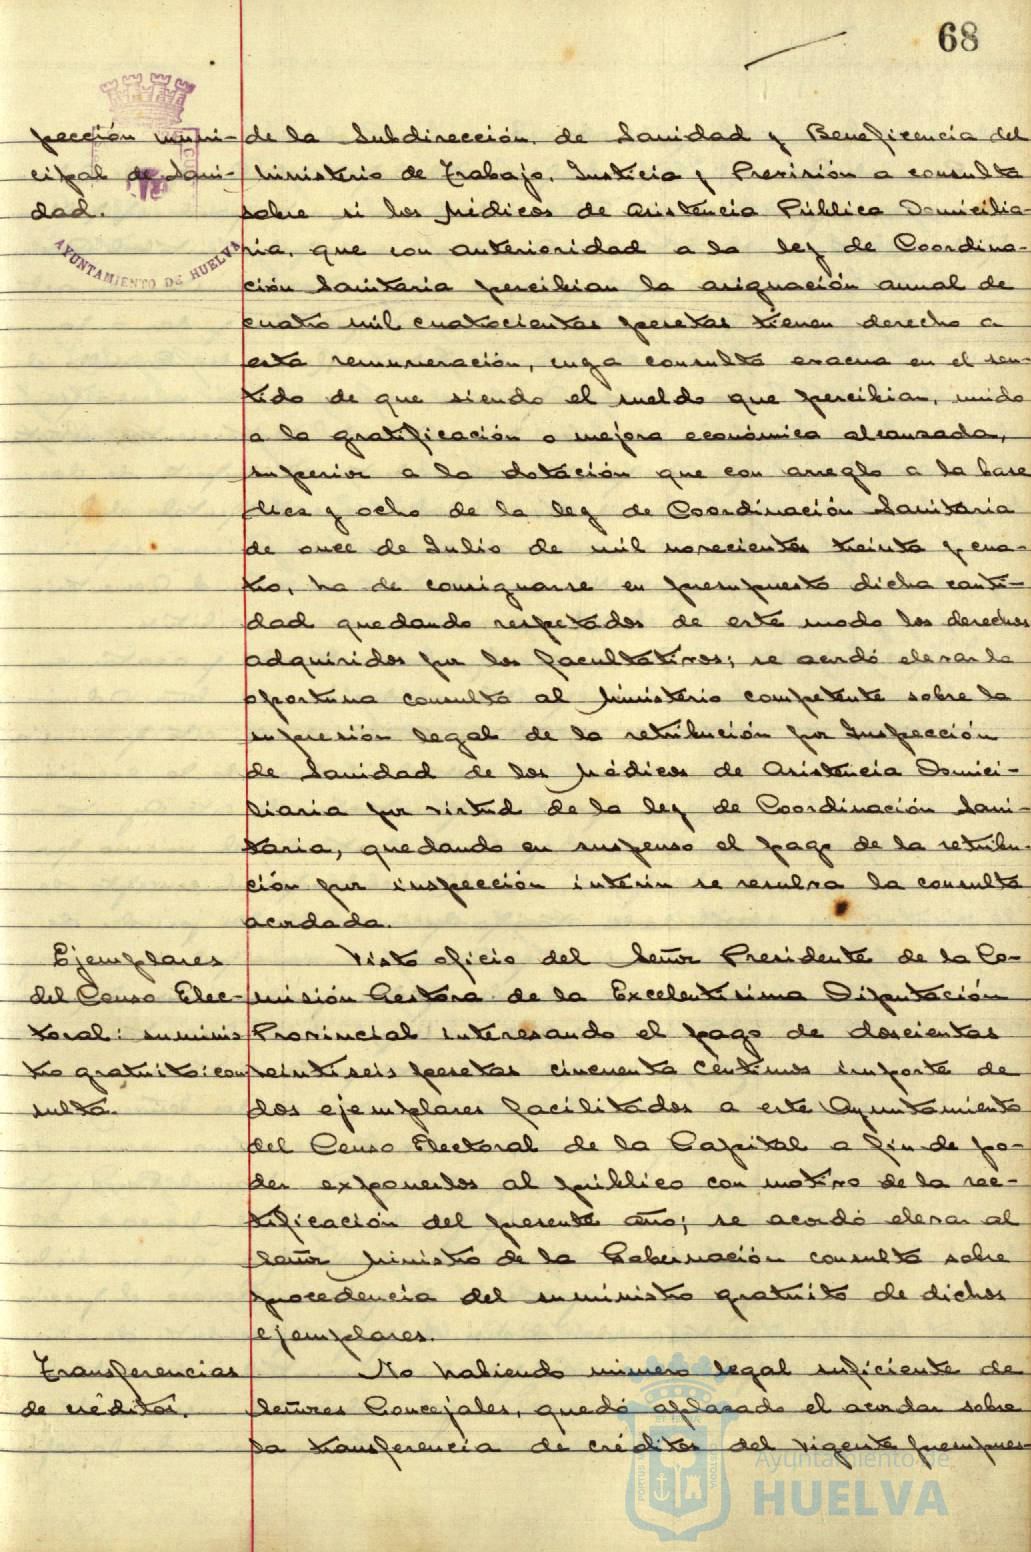 68
pección muni-
cipal de Sani-
dad.
AYUNTAMIENTO DE HUELVA
de la Subdirección de Sanidad y Beneficencia del
Ministerio de Trabajo, Justicia y Previsión a consulta
sobre si los Médicos de Asistencia Pública Domicilia-
ria, que con anterioridad a la ley de Coordina-
ción Sanitaria percibian la asignación anual de
cuatro mil cuatrocientas pesetas tienen derecho a
esta remuneración, cuya consulta evacua en el sen-
tido de que siendo el sueldo que percibian, unido
a la gratificación o mejora económica alcanzada,
superior a la dotación que con arreglo a la base
diez y ocho de la ley de Coordinación Sanitaria
de once de Julio de mil novecientos treinta y cua-
tro, ha de consignarse en presupuesto dicha canti-
dad quedando respetados de este modo los derechos
adquiridos por los facultativos; se acordó elevar la
oportuna consulta al Ministerio competente sobre la
supresión legal de la retribución por Inspección
de Sanidad de los Médicos de Asistencia Domici-
liaria por virtud de la ley de Coordinación Sani-
taria, quedando en suspenso el pago de la retribu-
ción por inspección interin se resuelva la consulta
acordada.
Ejemplares
del Censo Elec-
toral: suminis
tro gratuito: con
sulta.
Visto oficio del Señor Presidente de la Co-
misión Gestora de la Excelentisima Diputación
Provincial interesando el pago de doscientas
veintiseis pesetas cincuenta céntimos importe de
dos ejemplares facilitados a este Ayuntamiento
del Censo Electoral de la Capital a fin de po-
der exponerlos al público con motivo de la rec-
tificación del presente año; se acordó elevar al
Señor Ministro de la Gobernación consulta sobre
procedencia del suministro gratuito de dichos
ejemplares.
Transferencias
de créditos.
No habiendo número legal suficiente de
Señores Concejales, quedó aplazado el acordar sobre
la transferencia de créditos del vigente presupues-
Ayuntamiento de
HUELVA